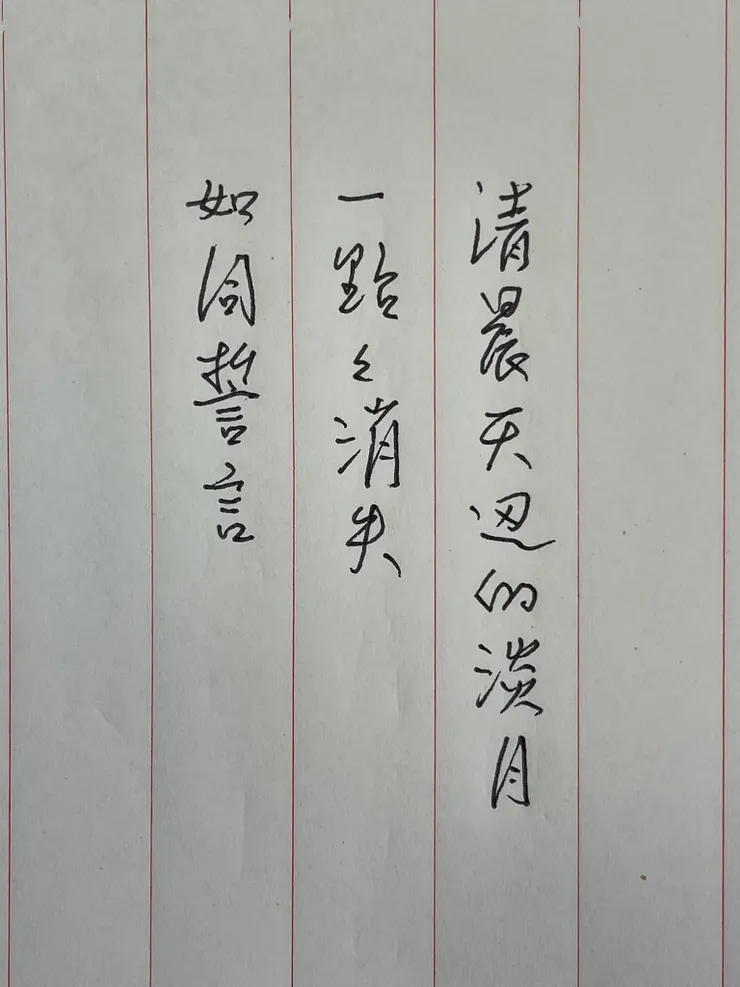 清晨天边的淡月
一點々消失
如同誓言